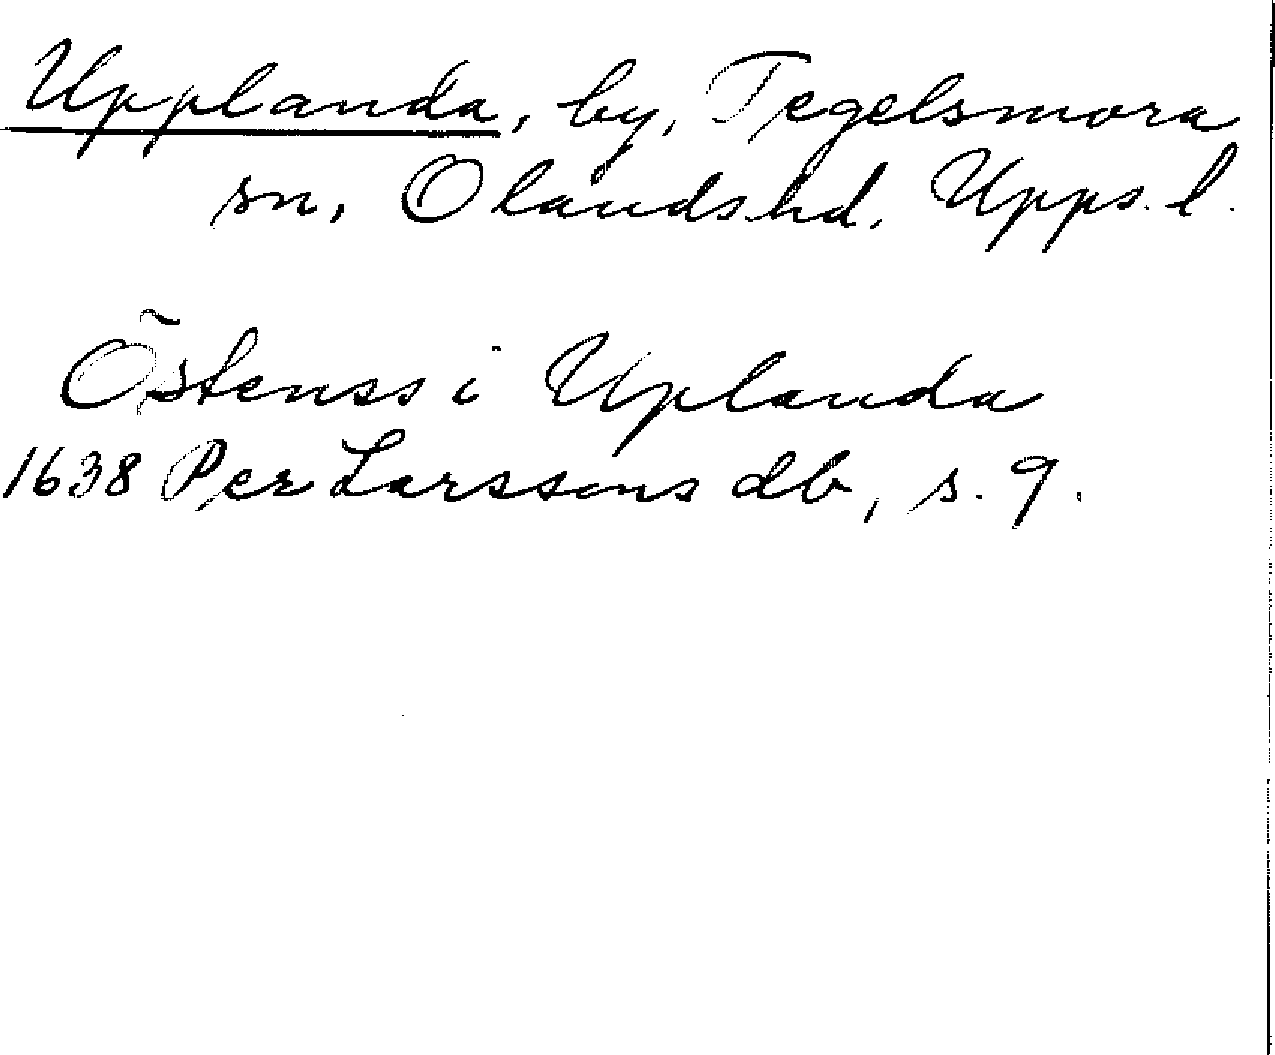 Upplanda, by, Tegelsmora
sn, Olands hd. Upps. l.
Östenss i Uplanda
1638 Per Larssons db, s. 9.